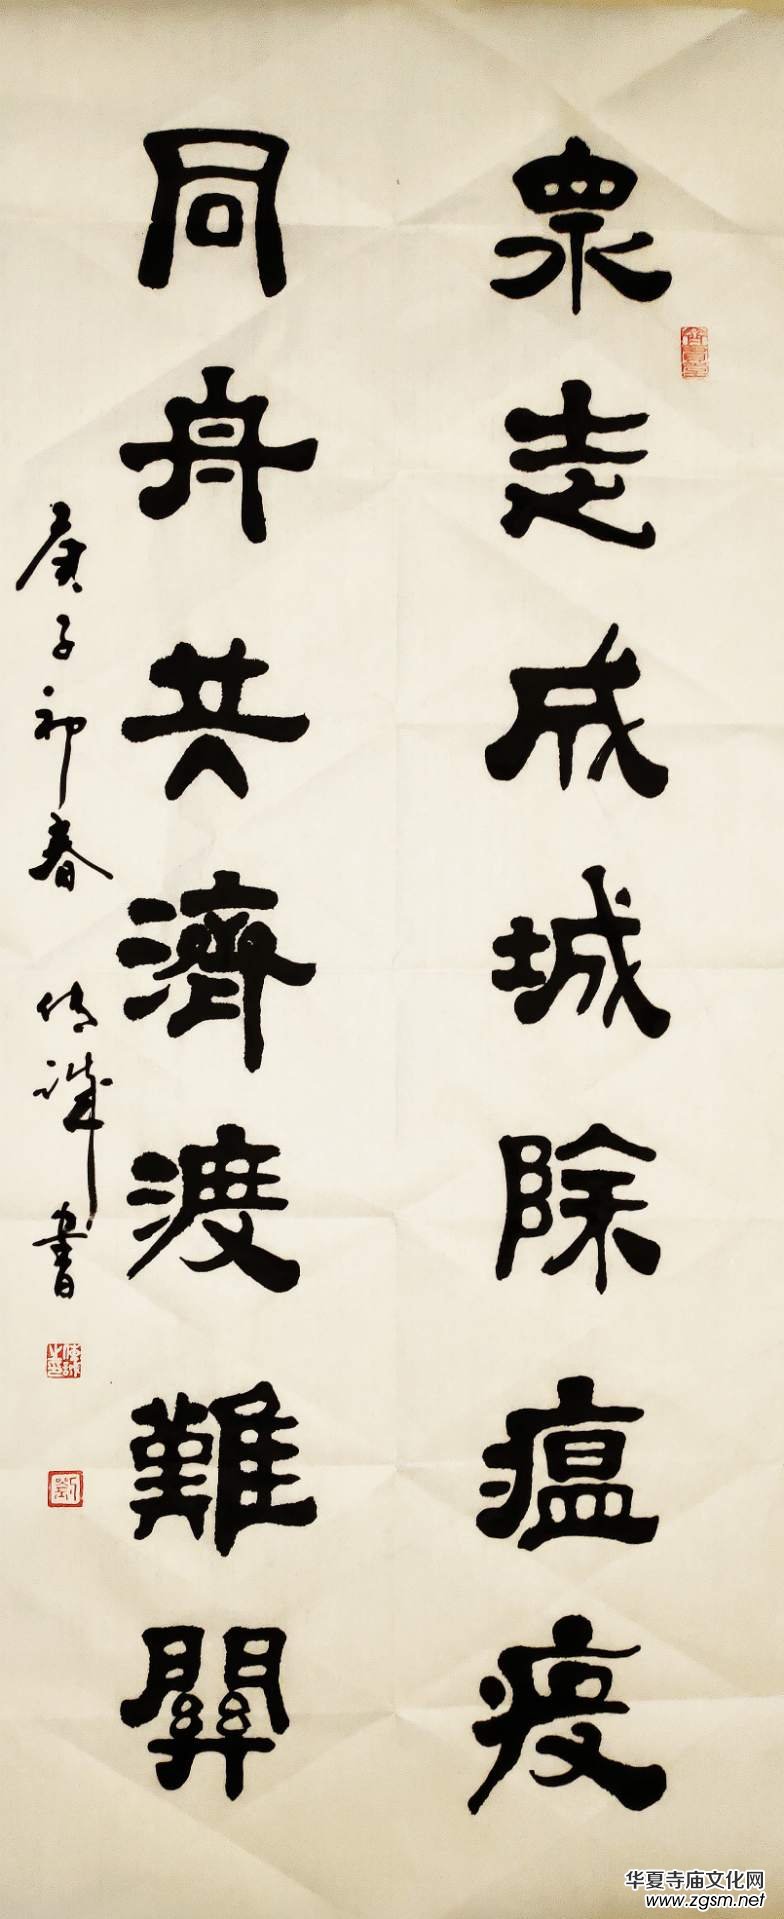 眾志成城除瘟疫
同舟共濟渡難關
庚子初春 傳誠書
劉
华夏寺庙文化网
www.zgsm.net